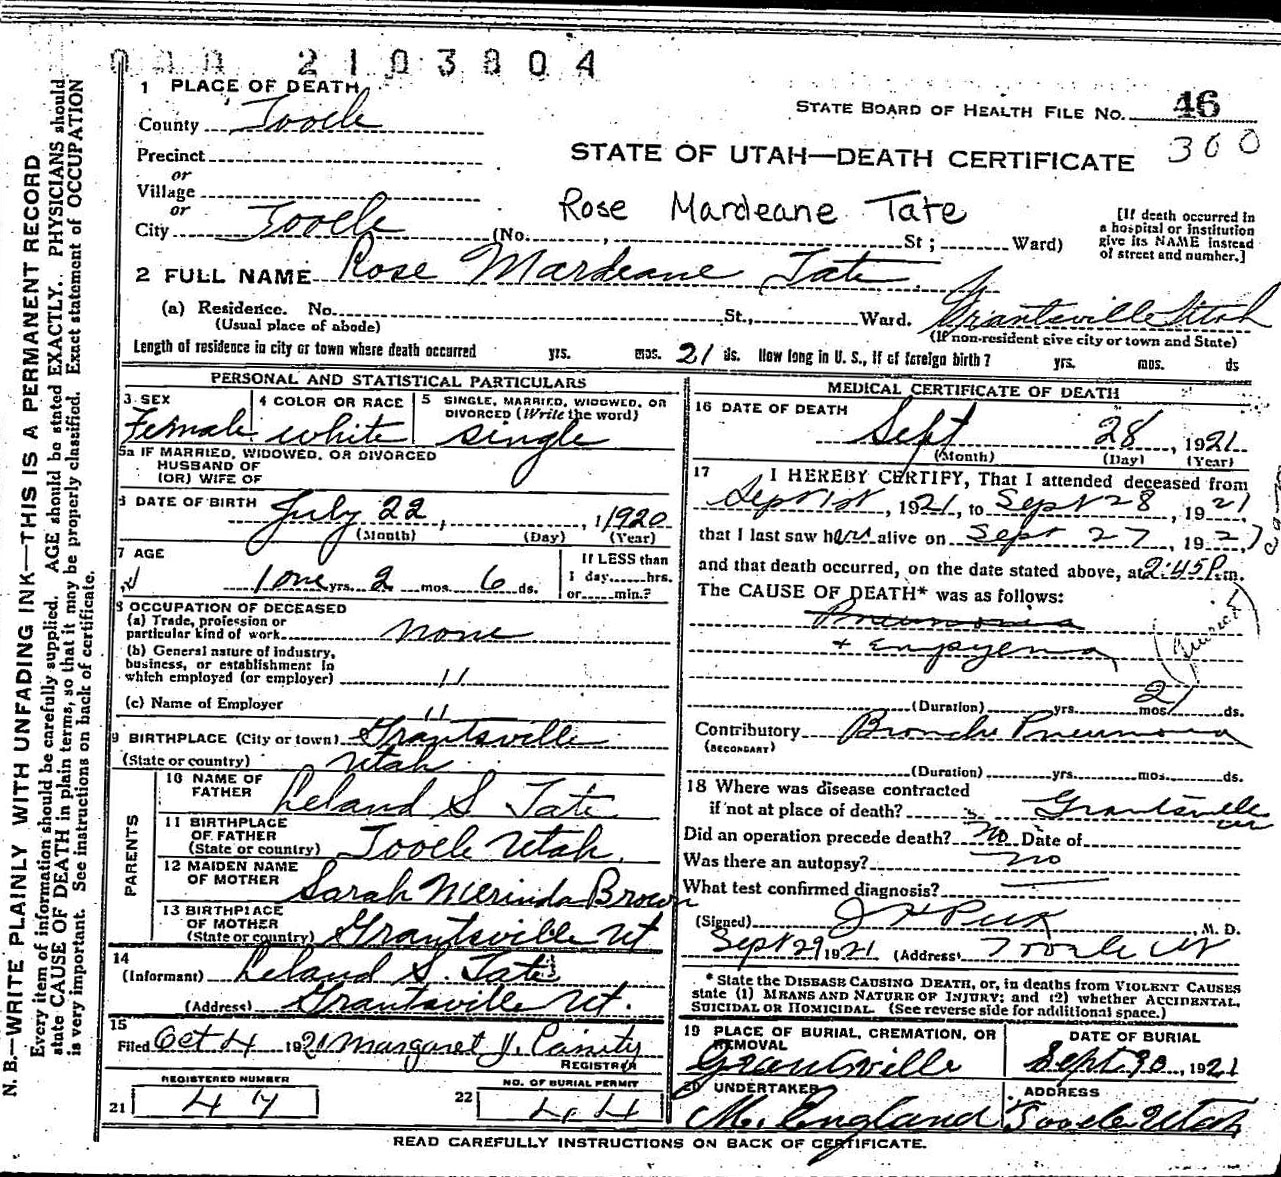 2103804
1 PLACE OF DEATH
County Tooele
STATE BOARD OF HEALTH FILE NO. 46
300
Precinct
STATE OF UTAH—DEATH CERTIFICATE
or
Village
or
City Tooele
Rose Mardeane Tate
(No. , St ; Ward)
[If death occurred in
a hospital or institution
give its NAME instead
of street and number.]
2 FULL NAME Rose Mardeane Tate
(a) Residence. No. St., Ward. Grantsville Utah
(Usual place of abode)
(If non-resident give city or town and State)
Length of residence in city or town where death occurred yrs. mos. 21 ds. How long in U. S., if of foreign birth? yrs. mos. ds
PERSONAL AND STATISTICAL PARTICULARS
3 SEX
Female
4 COLOR OR RACE
white
5 SINGLE, MARRIED, WIDOWED, OR
DIVORCED (Write the word)
single
5a IF MARRIED, WIDOWED, OR DIVORCED
HUSBAND OF
(OR) WIFE OF
6 DATE OF BIRTH July 22, 1920
(Month) (Day) (Year)
7 AGE
1 one yrs. 2 mos. 6 ds.
If LESS than
1 day......hrs.
or......min.?
8 OCCUPATION OF DECEASED
(a) Trade, profession or
particular kind of work none
(b) General nature of industry,
business, or establishment in
which employed (or employer) 11
(c) Name of Employer 11
9 BIRTHPLACE (City or town) Grantsville
(State or country) Utah
PARENTS
10 NAME OF
FATHER Leland S Tate
11 BIRTHPLACE
OF FATHER
(State or country) Tooele Utah.
12 MAIDEN NAME
OF MOTHER Sarah Merinda Brown
13 BIRTHPLACE
OF MOTHER
(State or country) Grantsville Ut
14
(Informant) Leland S. Tate
(Address) Grantsville Ut.
15
Filed Oct 4 1921 Margaret J.
REGISTRAR
REGISTERED NUMBER
21 47
NO. OF BURIAL PERMIT
22 44
MEDICAL CERTIFICATE OF DEATH
16 DATE OF DEATH
Sept 28, 1921
(Month) (Day) (Year)
17 I HEREBY CERTIFY, That I attended deceased from
Sept 1st, 1921, to Sept 28, 1921
that I last saw her alive on Sept 27, 192
and that death occurred, on the date stated above, at 2:45 P.m.
The CAUSE OF DEATH* was as follows:
Pneumonia
+ Empyema
(Duration) yrs. mos. 21 ds.
Contributory Broncho Pneumonia
(SECONDARY)
(Duration) yrs. mos. ds.
18 Where was disease contracted
if not at place of death? Grantsville
Did an operation precede death? no Date of
Was there an autopsy? no
What test confirmed diagnosis?
(Signed) J H Peck, M. D.
Sept 29 1921 (Address) Tooele Ut
* State the DISEASE CAUSING DEATH, or, in deaths from VIOLENT CAUSES
state (1) MEANS AND NATURE OF INJURY; and (2) whether ACCIDENTAL,
SUICIDAL OR HOMICIDAL. (See reverse side for additional space.)
19 PLACE OF BURIAL, CREMATION, OR
REMOVAL
Grantsville
DATE OF BURIAL
Sept. 30, 1921
20 UNDERTAKER
M. England
ADDRESS
Tooele Utah
READ CAREFULLY INSTRUCTIONS ON BACK OF CERTIFICATE.
N. B.—WRITE PLAINLY WITH UNFADING INK—THIS IS A PERMANENT RECORD
Every item of information should be carefully supplied. AGE should be stated EXACTLY. PHYSICIANS should
state CAUSE OF DEATH in plain terms, so that it may be properly classified. Exact statement of OCCUPATION
is very important. See instructions on back of certificate.